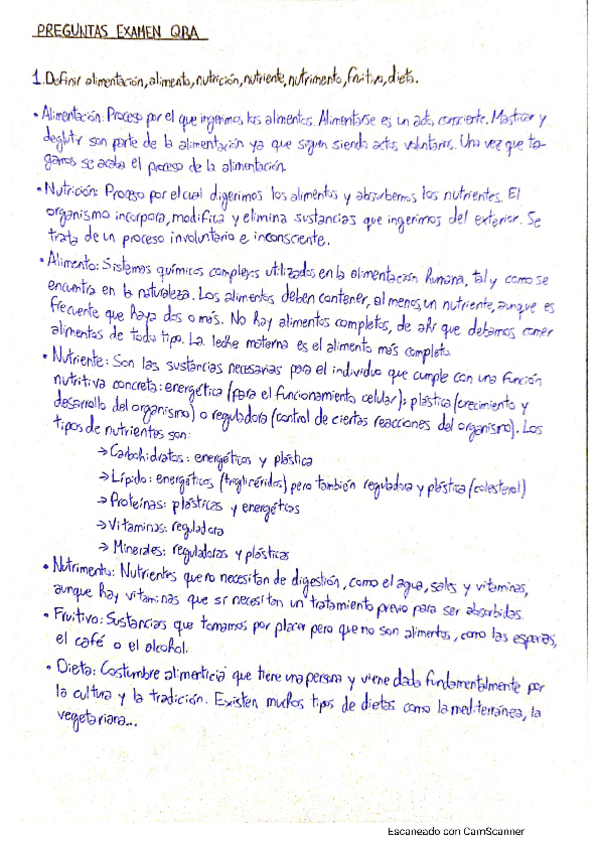 PREGUNTAS EXAMEN QBA
1. Definir alimentación, alimento, nutrición, nutriente, nutrimento, fruitivo, dieta.
• Alimentación: Proceso por el que ingerimos los alimentos. Alimentarse es un acto consciente. Masticar y
deglutir son parte de la alimentación ya que siguen siendo actos voluntarios. Una vez que tra-
gamos se acaba el proceso de la alimentación.
• Nutrición: Proceso por el cual digerimos los alimentos y absorbemos los nutrientes. El
organismo incorpora, modifica y elimina sustancias que ingerimos del exterior. Se
trata de un proceso involuntario e inconsciente.
• Alimento: Sistemas químicos complejos utilizados en la alimentación humana, tal y como se
encuentra en la naturaleza. Los alimentos deben contener, al menos, un nutriente, aunque es
frecuente que haya dos o más. No hay alimentos completos, de ahí que debamos comer
alimentos de todo tipo. La leche materna es el alimento más completo.
• Nutriente: Son las sustancias necesarias para el individuo que cumple con una función
nutritiva concreta: energética (para el funcionamiento celular); plástica (crecimiento y
desarrollo del organismo) o reguladora (control de ciertas reacciones del organismo). Los
tipos de nutrientes son:
→ Carbohidratos: energéticos y plástica
→ Lípido: energéticos (triglicéridos) pero también reguladora y plástica (colesterol)
→ Proteínas: plásticas y energéticas
→ Vitaminas: reguladora
→ Minerales: reguladoras y plásticas
• Nutrimento: Nutrientes que no necesitan de digestión, como el agua, sales y vitaminas,
aunque hay vitaminas que sí necesitan un tratamiento previo para ser absorbidas.
• Fruitivo: Sustancias que tomamos por placer pero que no son alimentos, como las especias,
el café o el alcohol.
• Dieta: Costumbre alimenticia que tiene una persona y viene dada fundamentalmente por
la cultura y la tradición. Existen muchos tipos de dietas como la mediterránea, la
vegetariana...
Escaneado con CamScanner